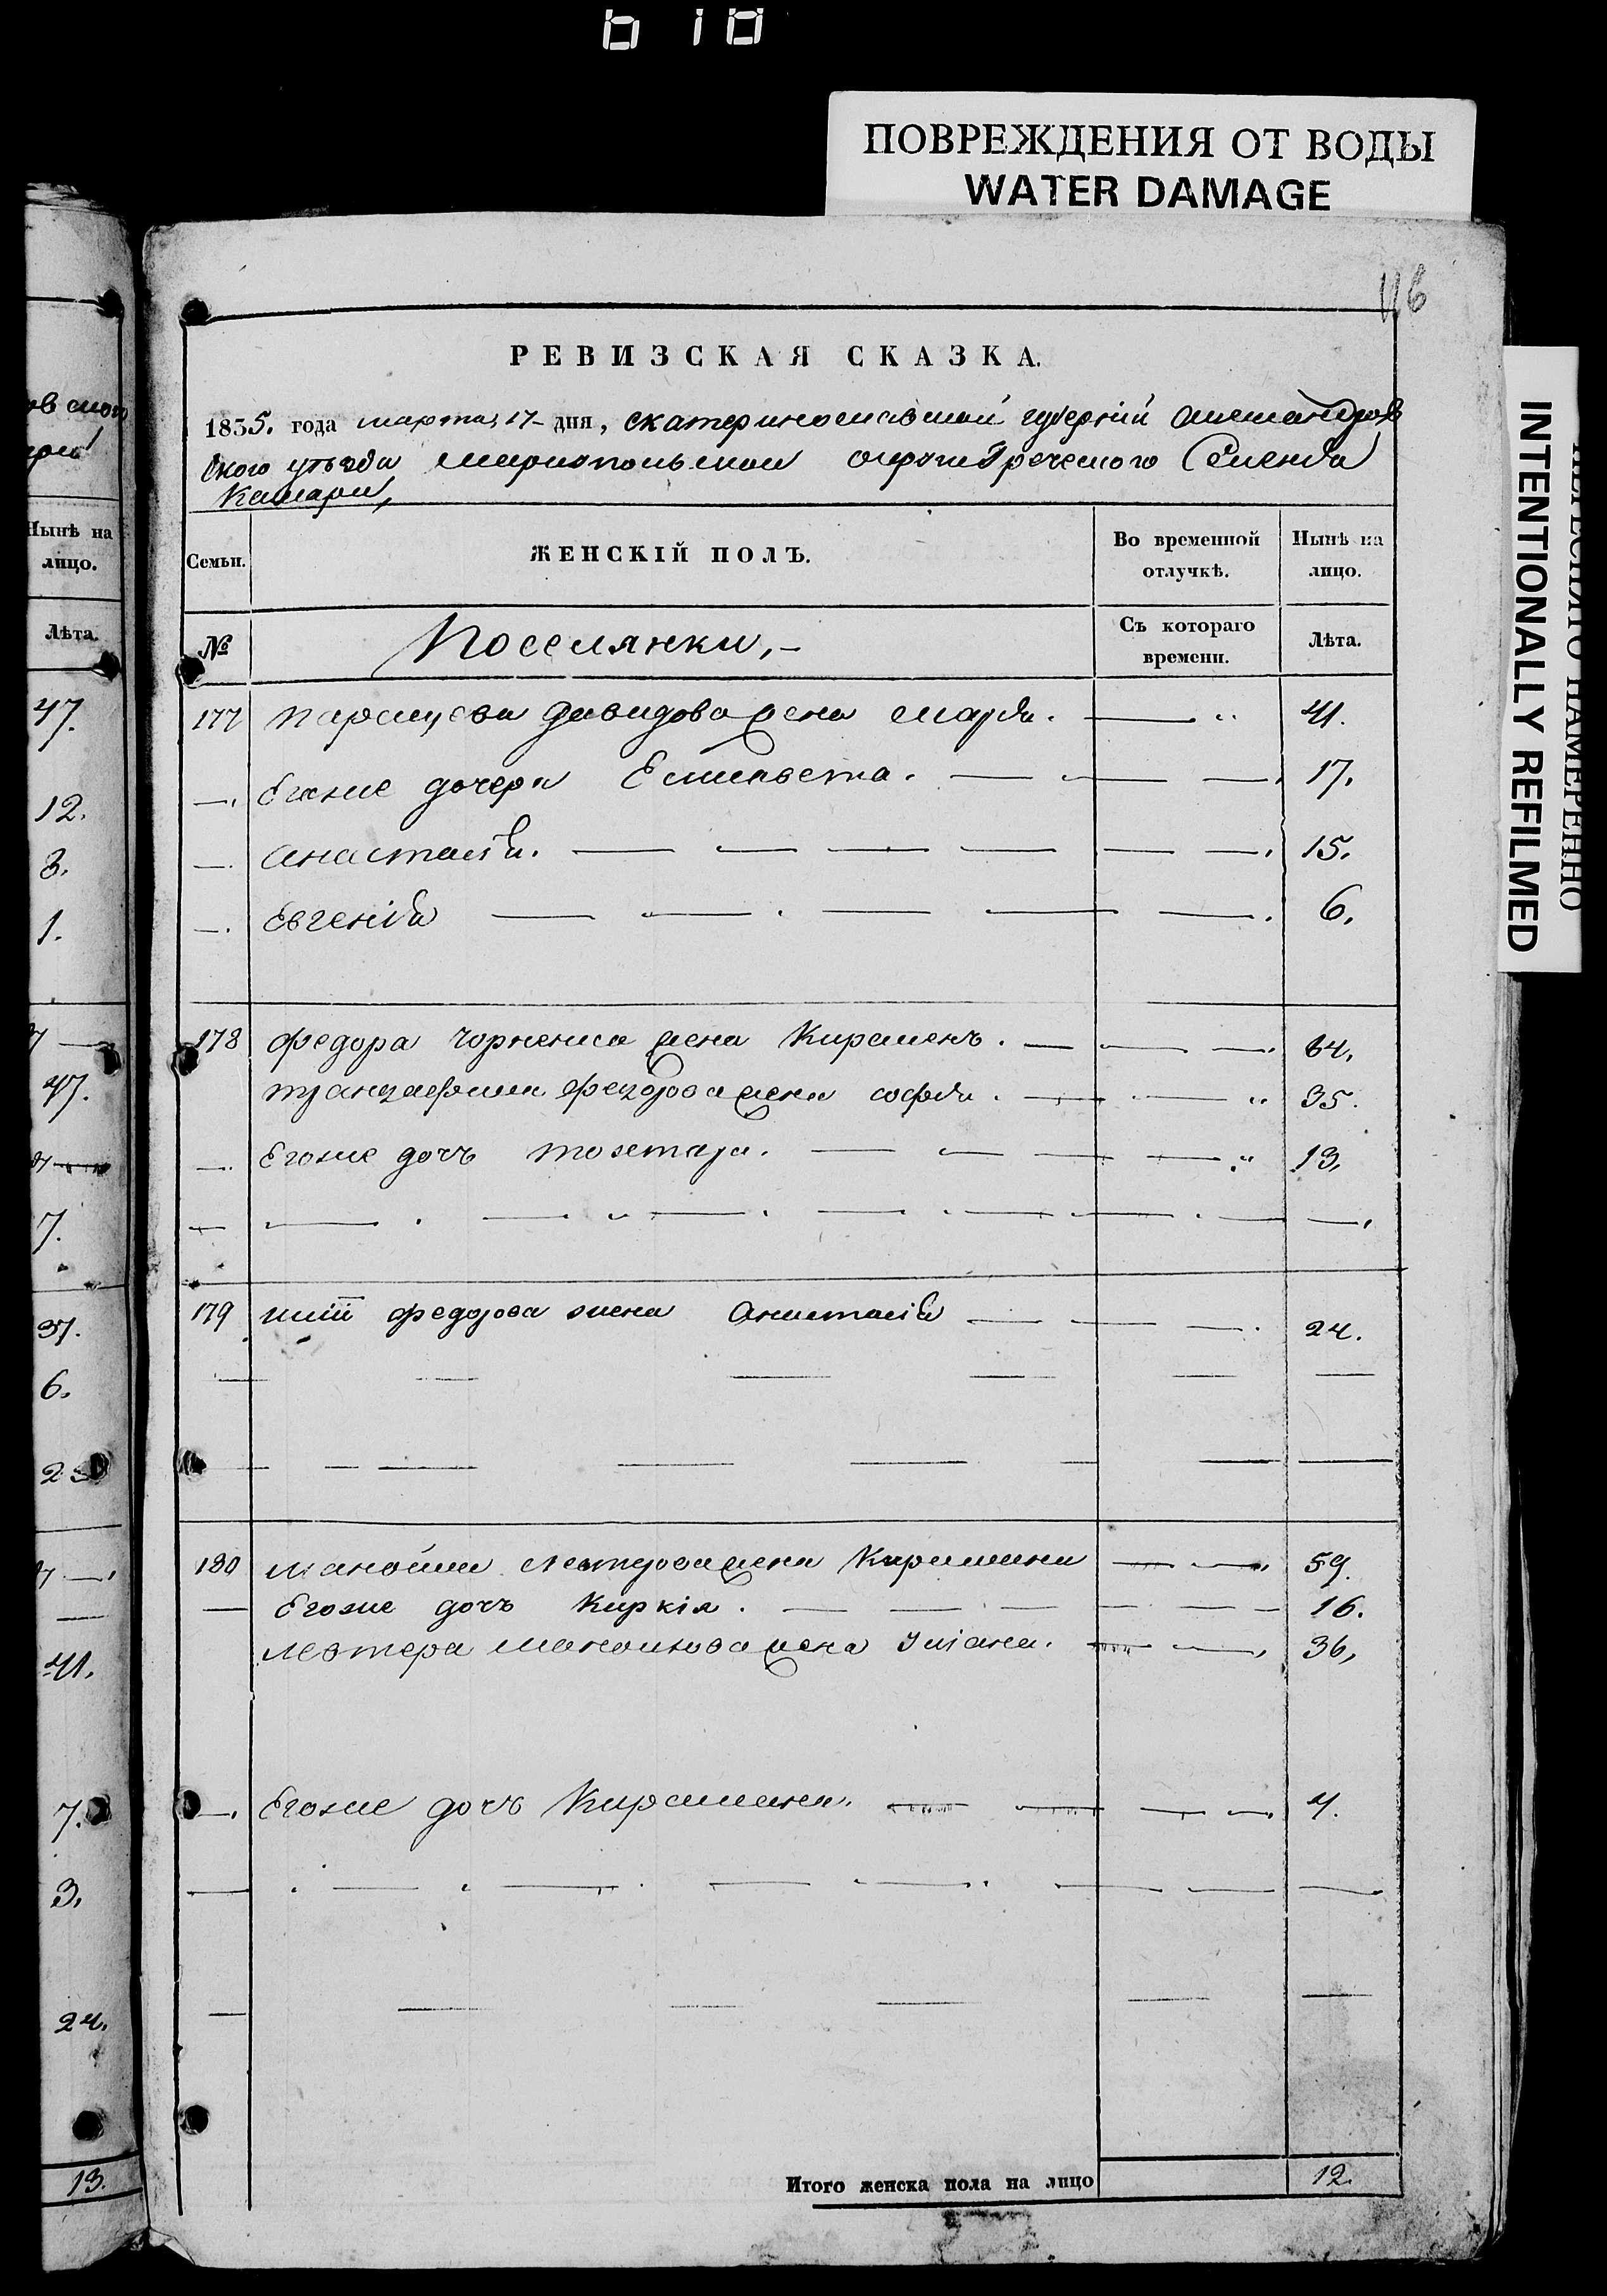 ПОВРЕЖДЕНИЯ ОТ ВОДЫ
WATER DAMAGE
116
РЕВИЗСКАЯ СКАЗКА.
1835. года марта, 17- дня, Екатеринославской губерній Александров
ского уѣзда Мариопольской округи Греческого Селенія
Камари,
Семьи.
ЖЕНСКІЙ ПОЛЪ.
Во временной отлучкѣ.
Нынѣ на лицо.
№
Поселянки,-
Съ котораго времени.
Лѣта.
177 Давидова жена Марія. 41.
Егоже дочери Елисавета. 17.
Анастасія. 15.
Евгенія 6.
178 Федора жена 64.
Федорова жена Софія. 35.
Егоже дочь 13.
179 Федорова жена Анастасія 24.
180 Манойла жена Киримана 59.
Егоже дочь Киркія. 16.
Левтера Манойлова жена 36,
Егоже дочь Киримана. 4.
Итого женска пола на лицо 12.
Нынѣ на
лицо.
Лѣта.
47.
12.
3.
1.
47.
7.
37.
6.
41.
7.
3.
24.
13.
INTENTIONALLY REFILMED
НАМЕРЕННО